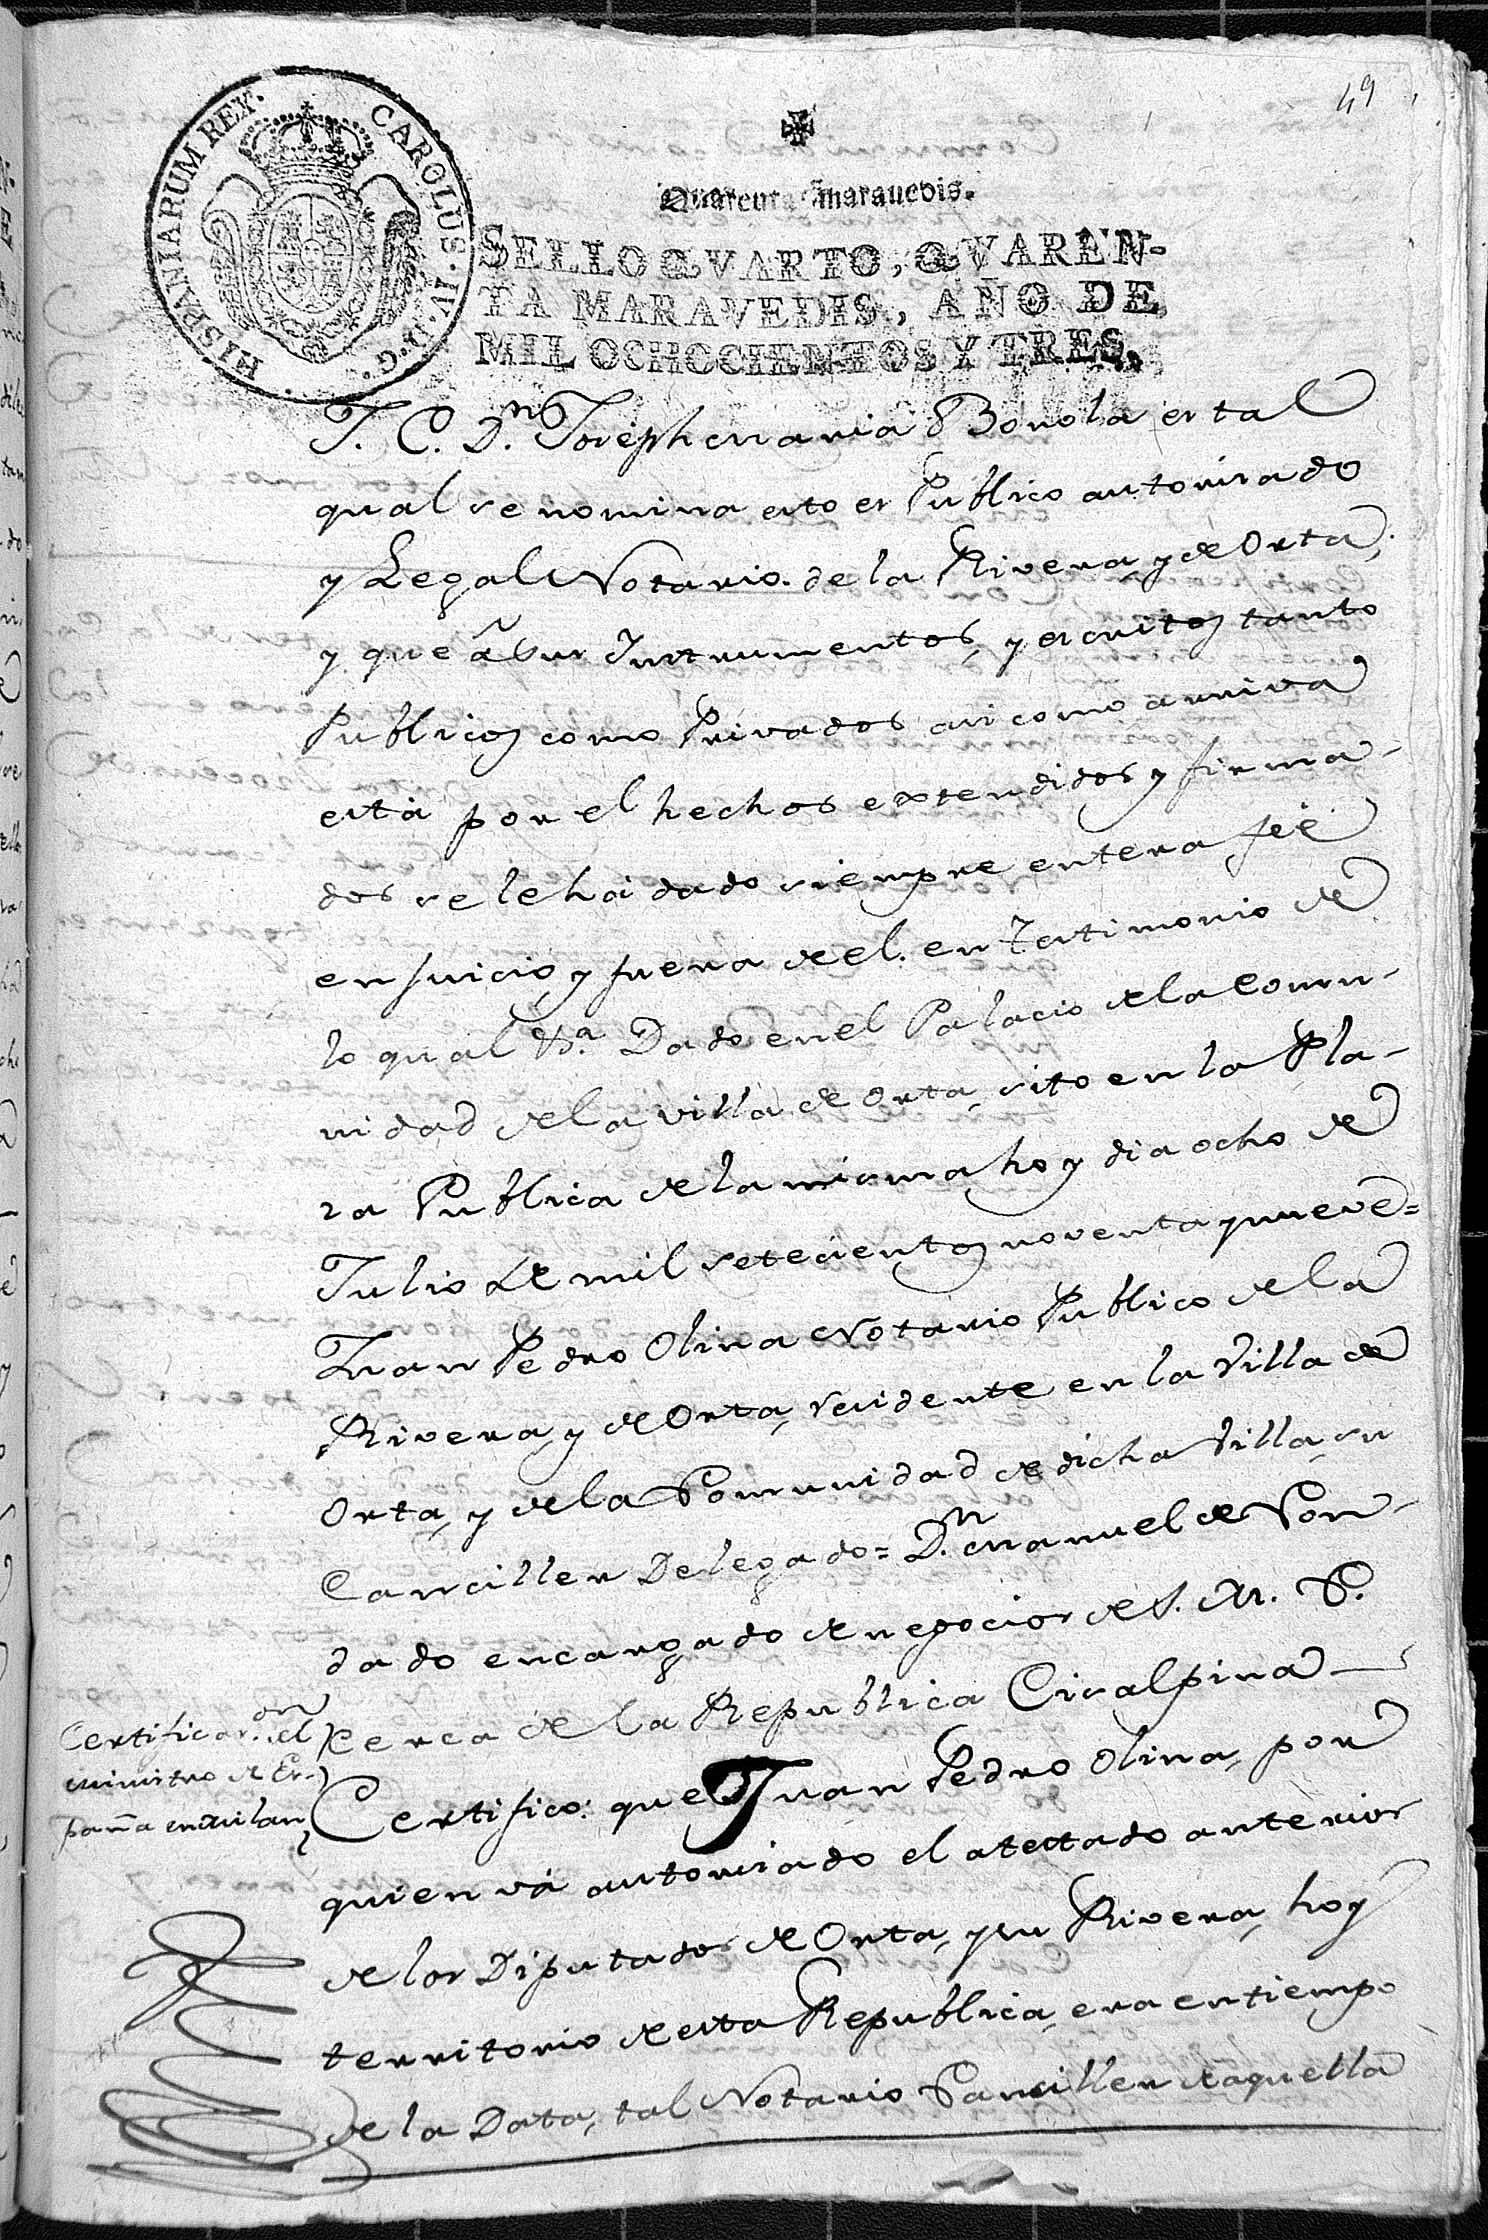 49
HISPANIARUM REX. CAROLUS. IV. D. G.
Quarenta maravedis.
SELLO QVARTO, QVAREN-
TA MARAVEDIS, AÑO DE
MIL OCHOCIENTOS Y TRES.
J. C. D.n Joseph Maria Bonola es tal
qual se nomina esto es Publico autorisado
y Legal Notario de la Rivera, y de Orta,
y que â sus Instrumentos, y escritos tanto
Publicos como Privados asi como arriva
està por el hechos extendidos y firma-
dos se le hà dado siempre entera feè
en juicio, y fuera de el. en Testimonio de
lo qual &.a Dado en el Palacio de la Comu-
nidad de la villa de Orta, sito en la Pla-
za Publica de la misma, hoy dia ocho de
Julio de mil setecientos noventa y nueve=
Juan Pedro Olina Notario Publico de la
Rivera, y de Orta, residente en la Villa de
Orta, y de la Comunidad de dicha Villa, su
Canciller Delegado= D.n Manuel de Con-
dado encargado de negocios de S. M. C.
cerca de la Republica Cisalpina
Certificac.on del
ministro de Es-
paña en Milan
Certifico: que Juan Pedro Olina, por
quien và autorisado el atestado anterior
de los Diputados de Orta, y su Rivera, hoy
territorio de esta Republica, era en tiempo
de la Data, tal Notario Canciller de aquella